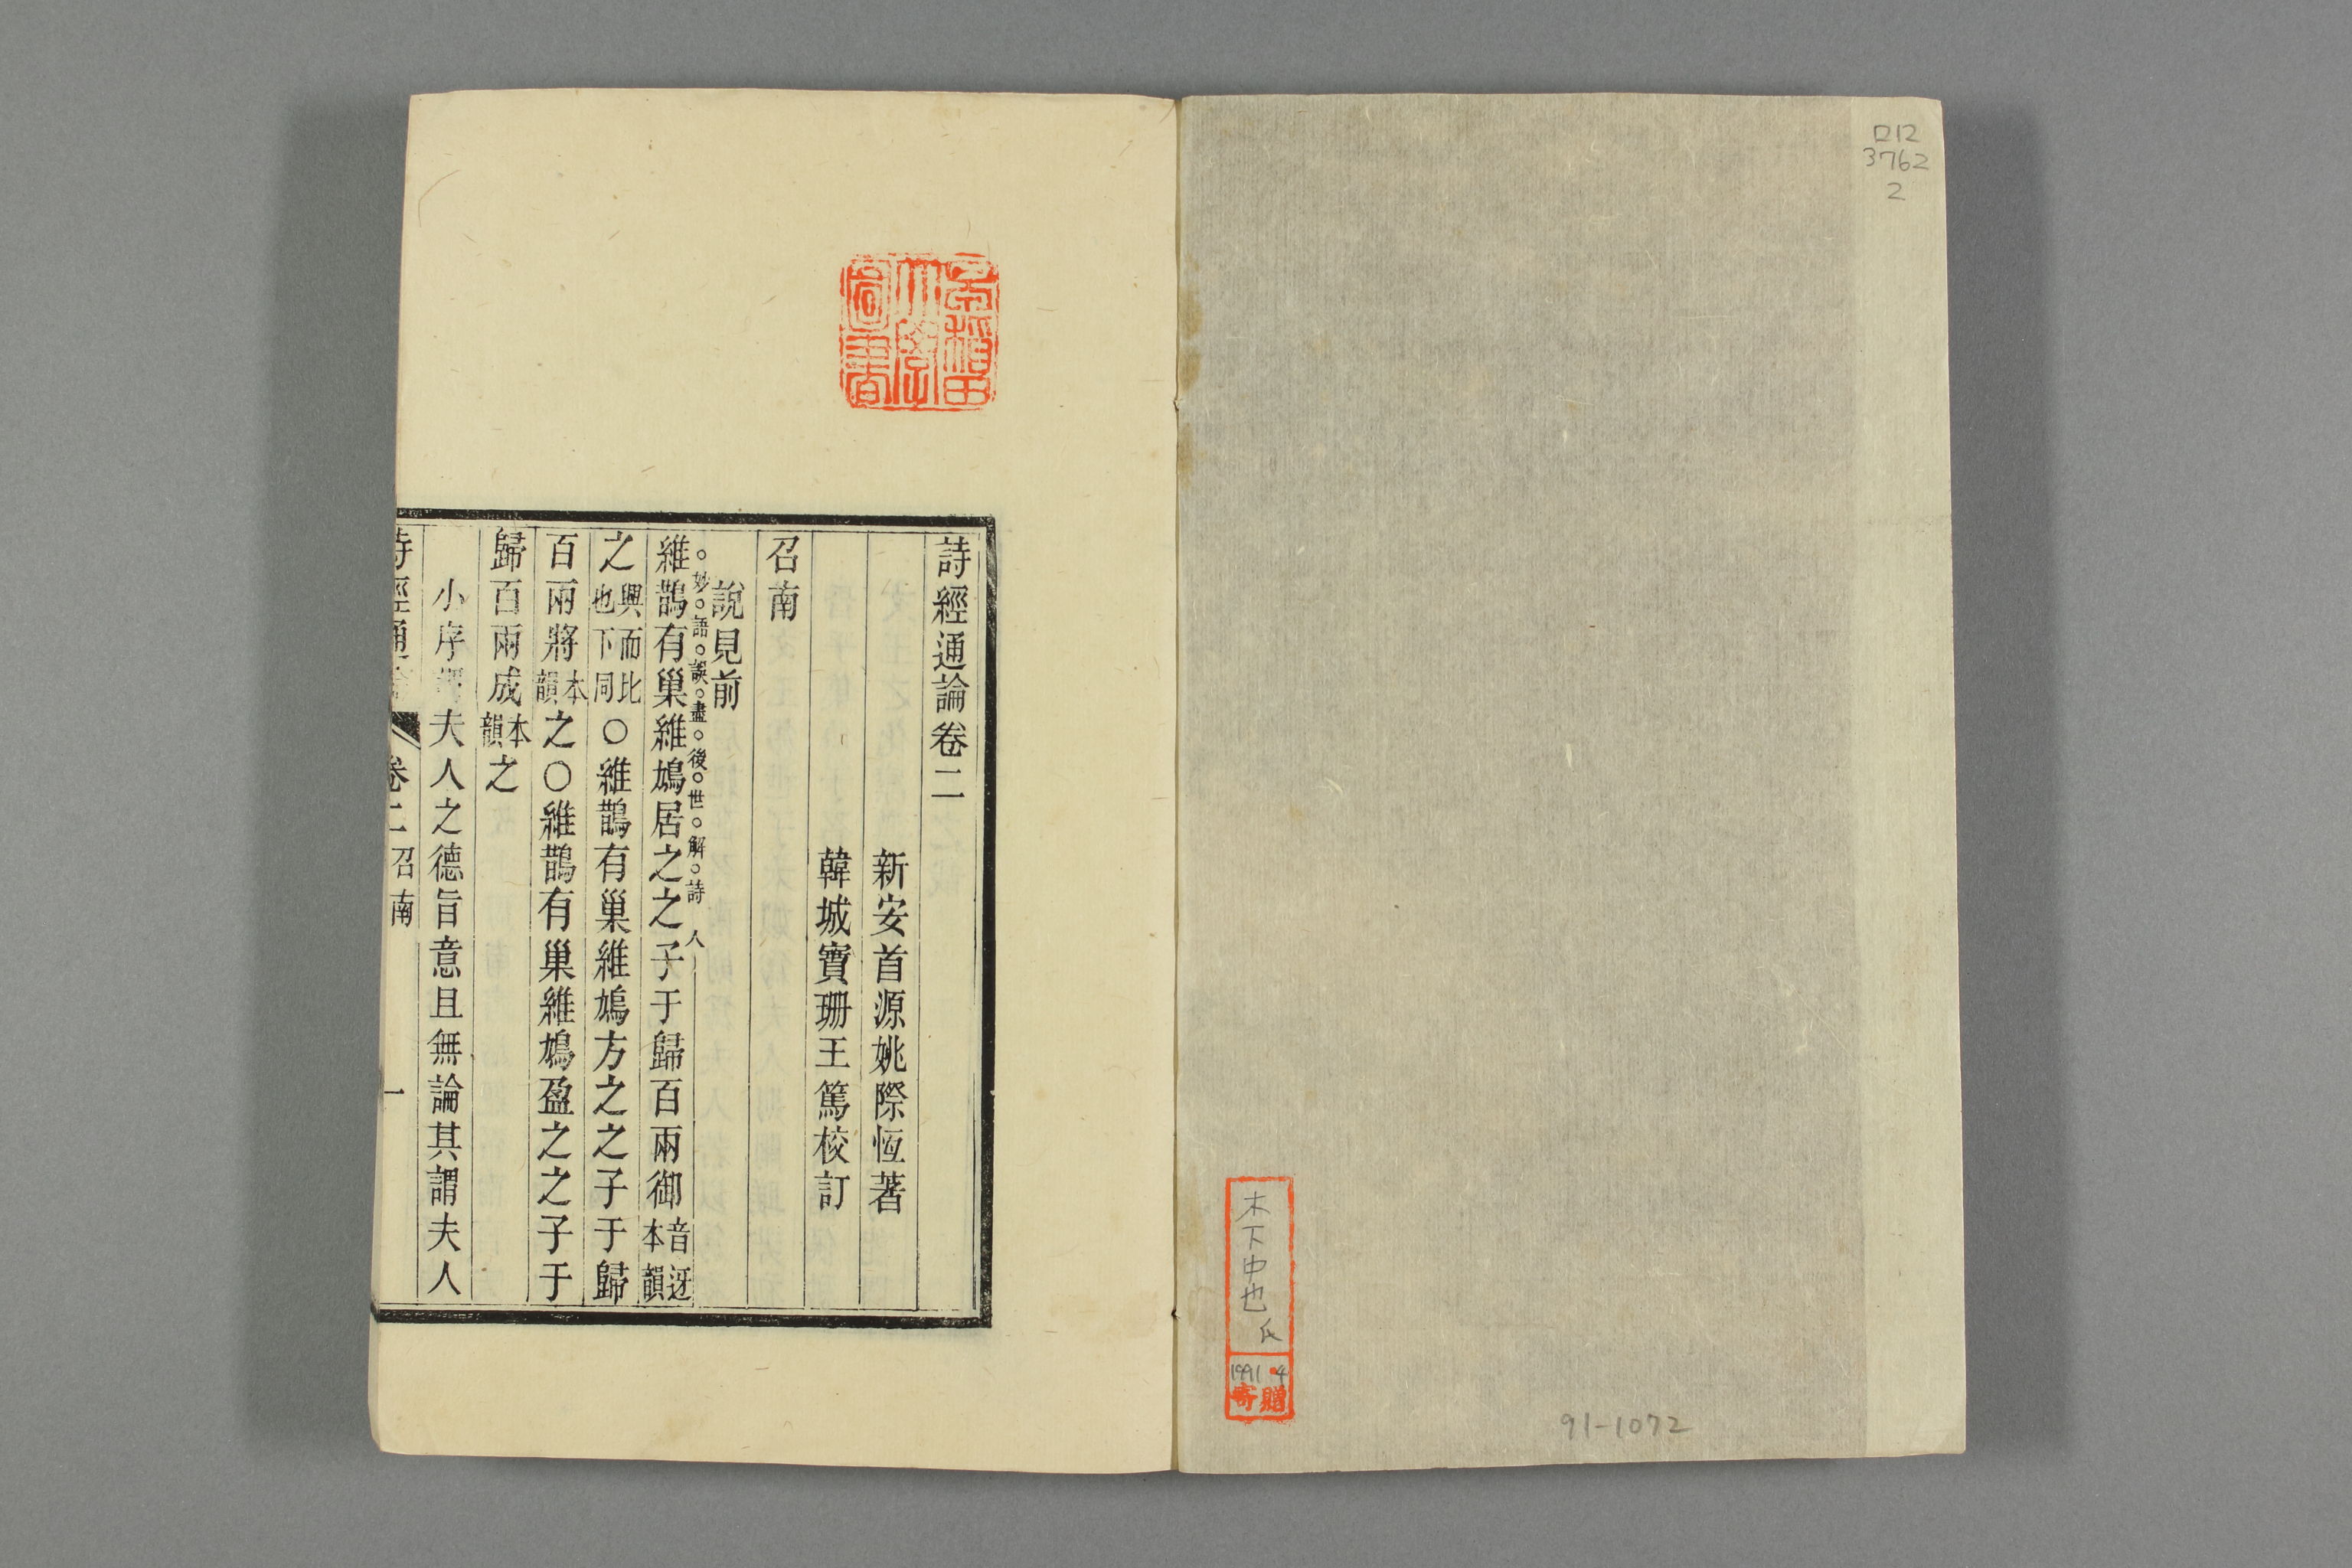 口12
3762
2
木下中也氏
1991.4
寄贈
91-1072
早稲田
大學
圖書
詩經通論卷二
新安首源姚際恆著
韓城寶珊王篤校訂
召南
說見前
妙語誤盡後世解詩人
維鵲有巢維鳩居之之子于歸百兩御音迓本韻
之興而比也下同○維鵲有巢維鳩方之之子于歸
百兩將本韻之○維鵲有巢維鳩盈之之子于
歸百兩成本韻之
小序謂夫人之德旨意且無論其謂夫人
詩經通論 卷二 召南 一